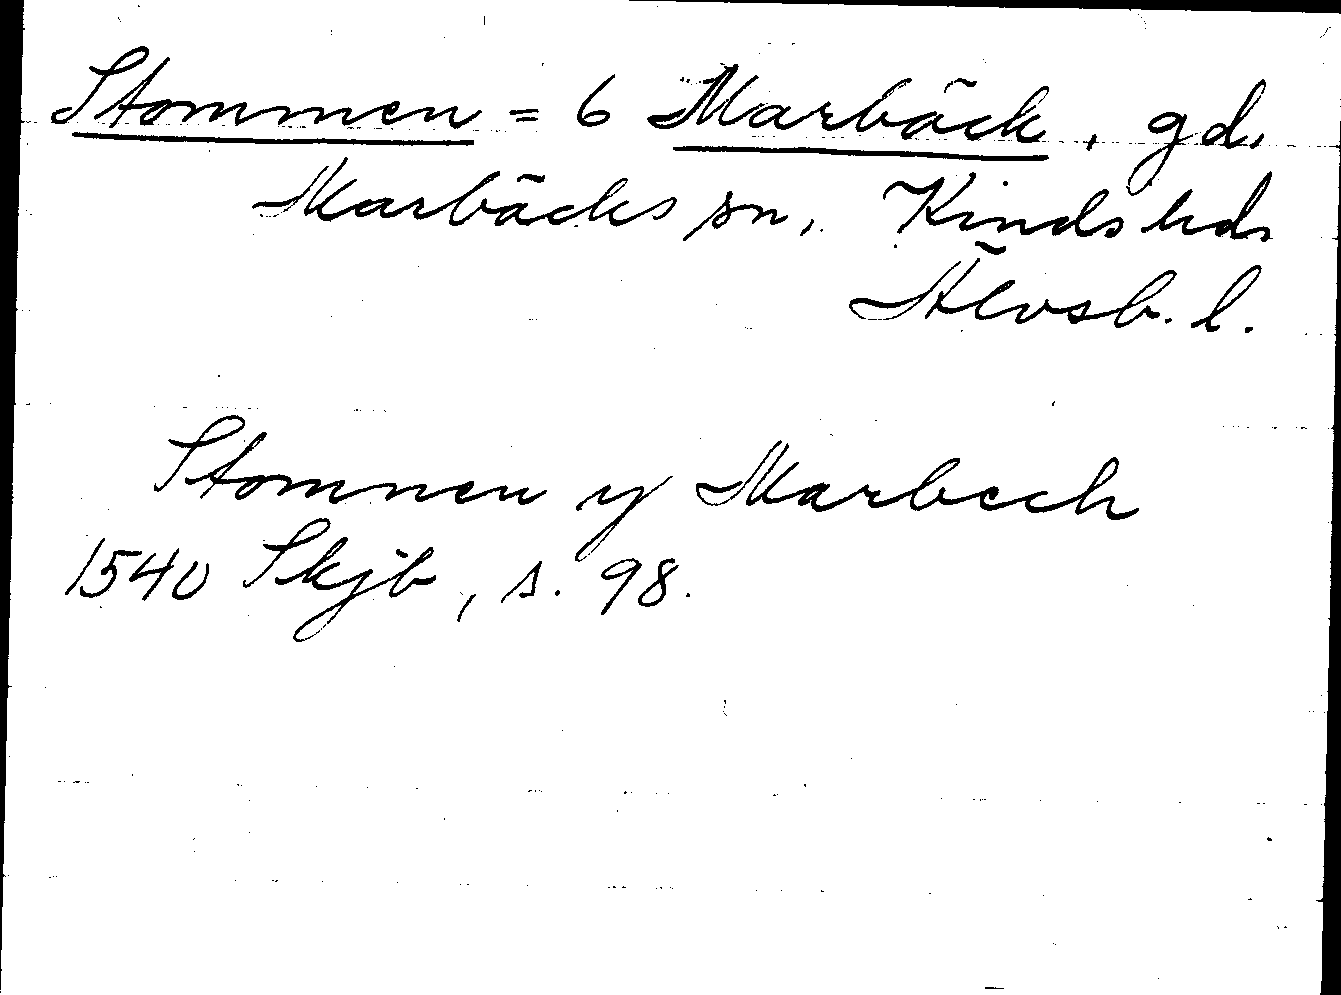 Stommen = 6 Marbäck, gd,
Marbäcks sn, Kinds hd,
Älvsb. l.
Stomnen y Marbech
1540 Skjb, s. 98.